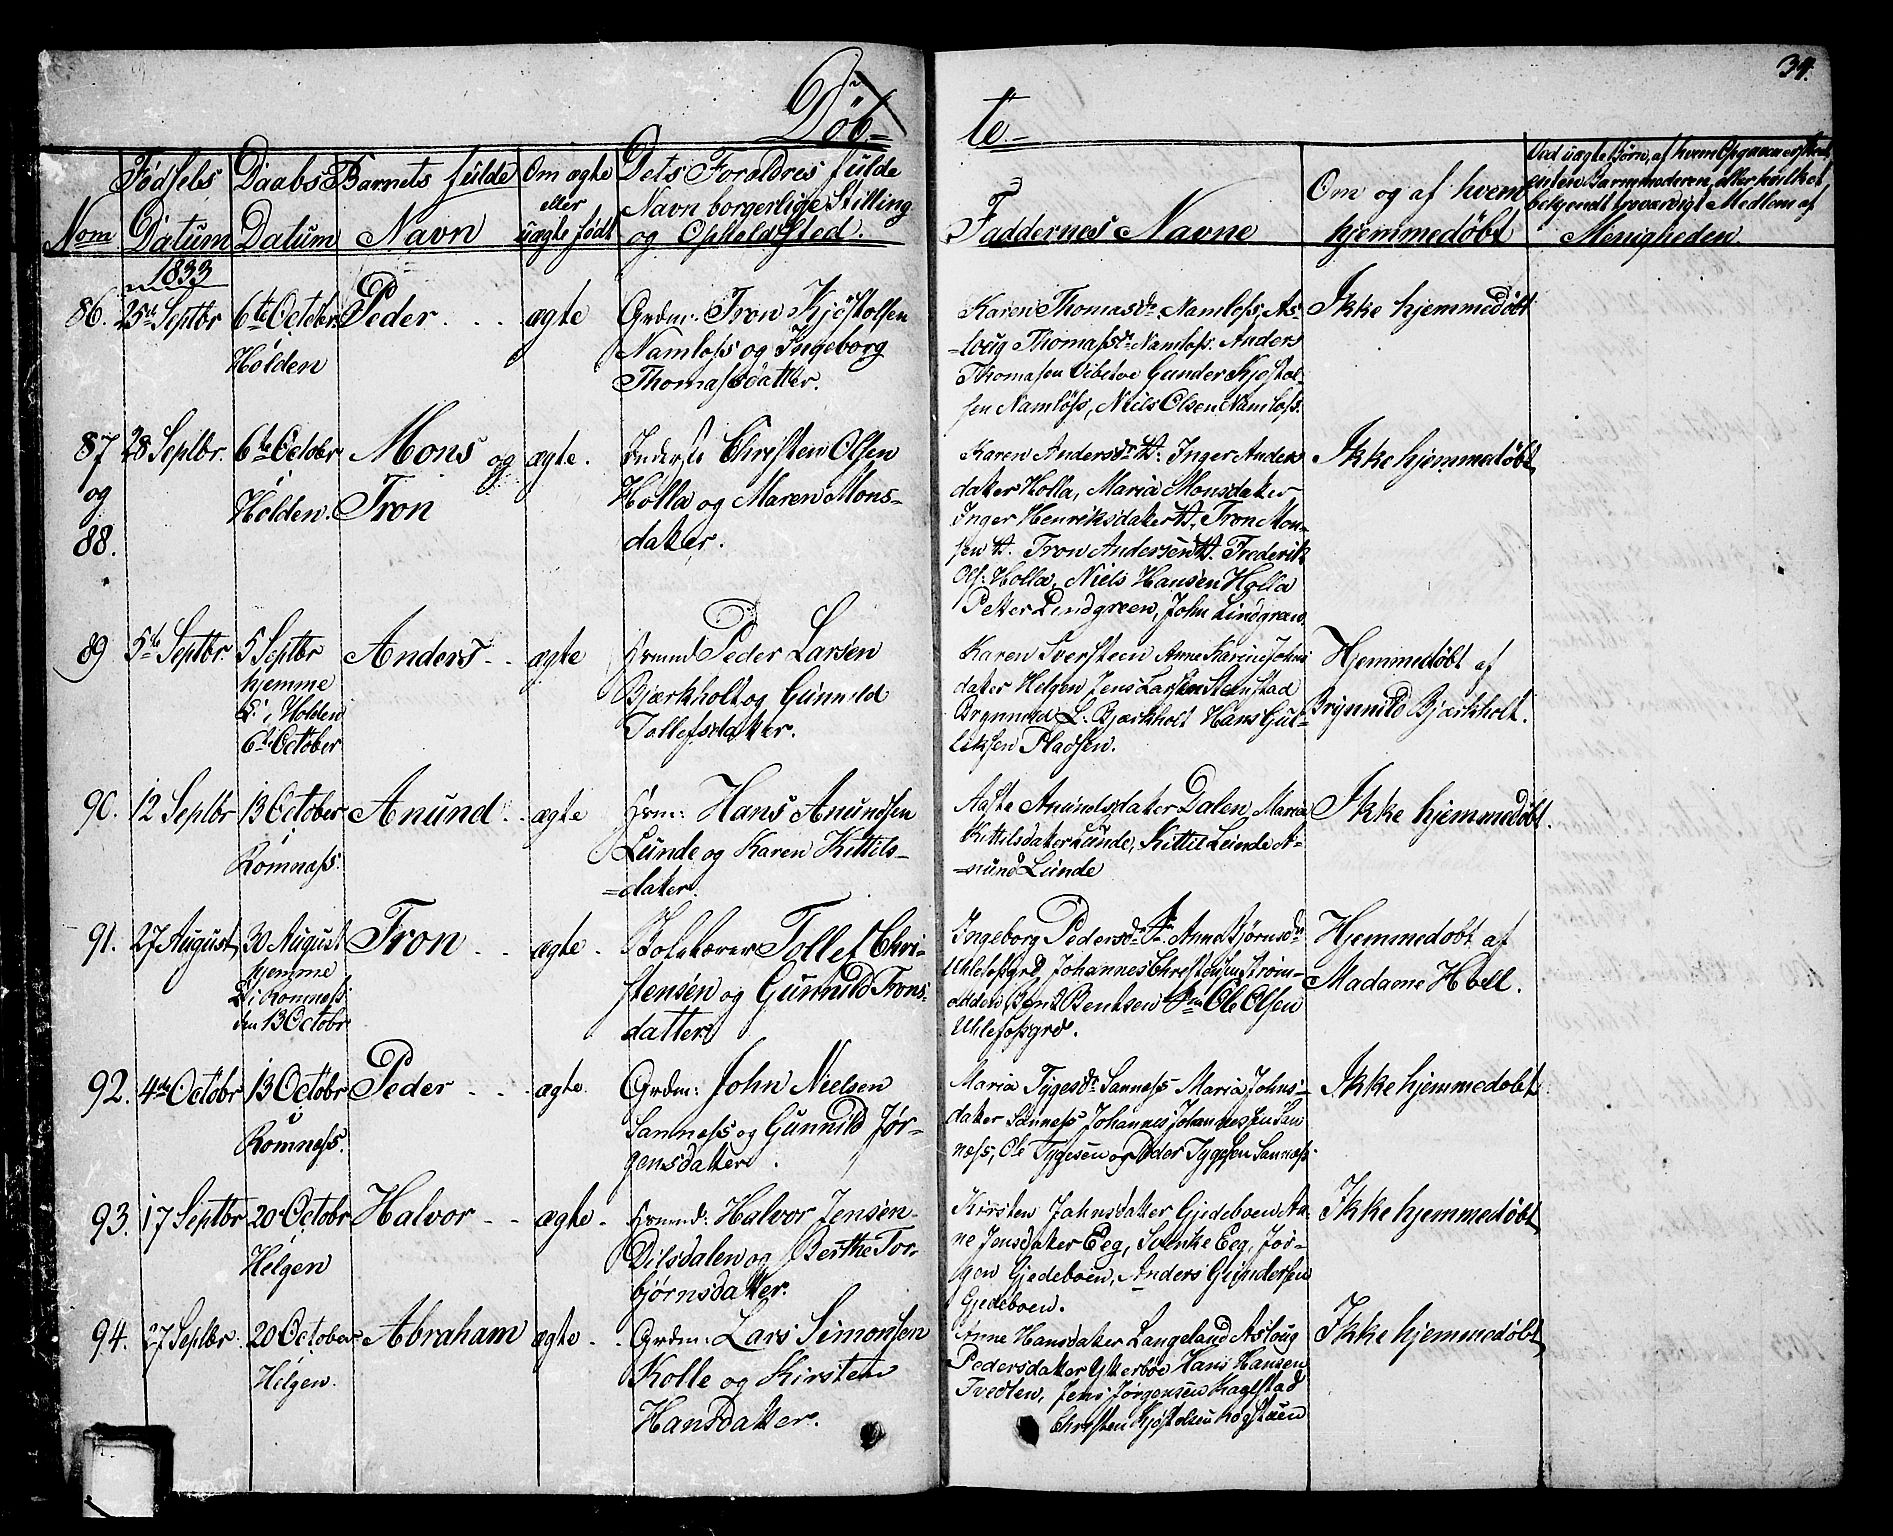 34.
Døb-
te-
Nom
Fødsels
Datum
Daabs
Datum
Barnets fulde
Navn
Om ægte
eller
uægte født
Dets Forældres fulde
Navn borgerlige Stilling
og Opholds Sted.
Faddernes Navne
Om og af hvem
hjemmedøbt
Ved uægte Børn, af hvem
enten Barnemoderen, eller hvilket
bekjendt troværdigt Medlem af
Menigheden.
1833
86. 25de Septbr
6te October
i
Holden
Peder
ægte
Grdm: Tron Kjøstolsen
Namløss og Ingeborg
Thomassdatter.
Karen Thomasdr Namløss, As-
-loug Thomassdr Namløss. Anders
Thomasen Vibetoe Gunder Kjøstol-
sen Namløss, Niels Olsen Namløss.
Ikke hjemmedøbt
87
og
88.
28 Septbr.
6te October
i
Holden.
Mons og
Tron
ægte.
Inderste Christen Olsen
Holla og Maren Mons-
datter.
Karen Andersdr H. Inger Anders
datter Holla, Maria Monsdatter
Inger Henriksdatter H. Tron Mon-
sen H. Tron Andersen H. Frederik
Ols: Holla, Niels Hansen Holla
Petter Lindgreen, John Lindgreen.
Ikke hjemmedøbt
89
5te Septbr.
5 Septbr
hjemme
D: i Holden
6te October
Anders
ægte
Huusmd Peder Larsen
Bjærkholt og Gunnild
Tollefsdatter.
Karen Sversteen Anne Karine Johns
datter Helgen Jens Larsen Steenstad
Brynnild L. Bjærkholt Hans Gul-
leksen Pladsen.
Hjemmedøbt af
Brynnild Bjærkholt.
90.
12 Septbr
13 October
i
Romnæss.
Anund
ægte
Huusm: Hans Anundsen
Lunde og Karen Kittils-
-datter.
Aaste Anundsdatter Dalen, Maria
Kittilsdatter Lunde, Kittil Lunde A-
-nund Lunde
Ikke hjemmedøbt.
91.
27 August
30 August
hjemme
D: i Romness
den 13 Octobr
Tron
ægte
Tollef Chri-
stensen og Gunnild Trons-
datter
Ingeborg Pedersdr Anne Bjørnsdr
Uhlefossgrd, Johannes Christensen Strøm-
odden, Bent Bentsen Ole Olsen
Uhlefossgrd.
Hjemmedøbt af
Madame Hoell.
92.
4de Octobr
13 Octobr
i
Romness.
Peder
ægte.
Grdm: John Nielsen
Sanness og Gunnild Jør-
gensdatter.
Maria Tygesdr Sanness Maria Johns-
datter Sanness Johannes Johannessen San
ness, Ole Tygesen og Peder Tygesen Sanness.
Ikke hjemmedøbt
93.
17 Septbr
20 Octobr
i
Helgen
Halvor
ægte.
Huusmd: Halvor Jensen
Dilsdalen og Berthe Tor-
bjørnsdatter.
Kirsten Jahnsdatter Gjedeboen An-
ne Jensdatter Eeg, Svenke Eeg, Jør-
gen Gjedeboen, Anders Gundersen
Gjedeboen.
Ikke hjemmedøbt
94.
27 Septbr.
20 October
i
Helgen.
Abraham
ægte
Grdm: Lars Simonsen
Kolle og Kirsten
Hansdatter.
Anne Hansdatter Langeland Asloug
Pedersdatter Ytterbøe Hans Hansen
Tvedten, Jens Jørgensen Kaalstad
Christen Kjøstolsen Rogstuen
Ikke hjemmedøbt